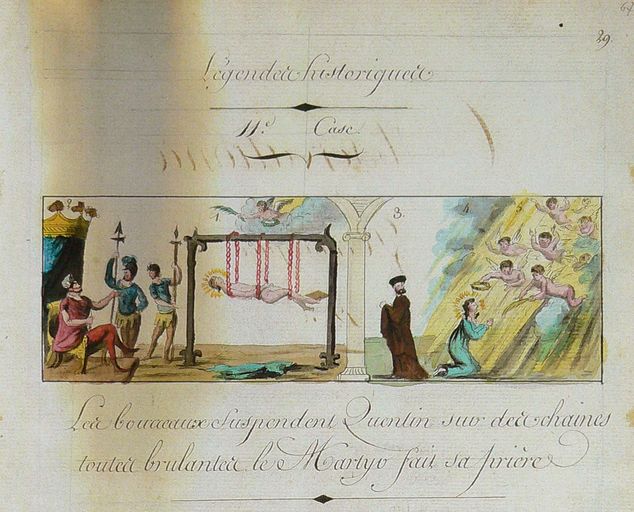 29
Légendes historiques
11.e Case.
1 2 3. 4 5
Les bourreaux suspendent Quentin sur des chaines
toutes brulantes le Martyr fait sa prière